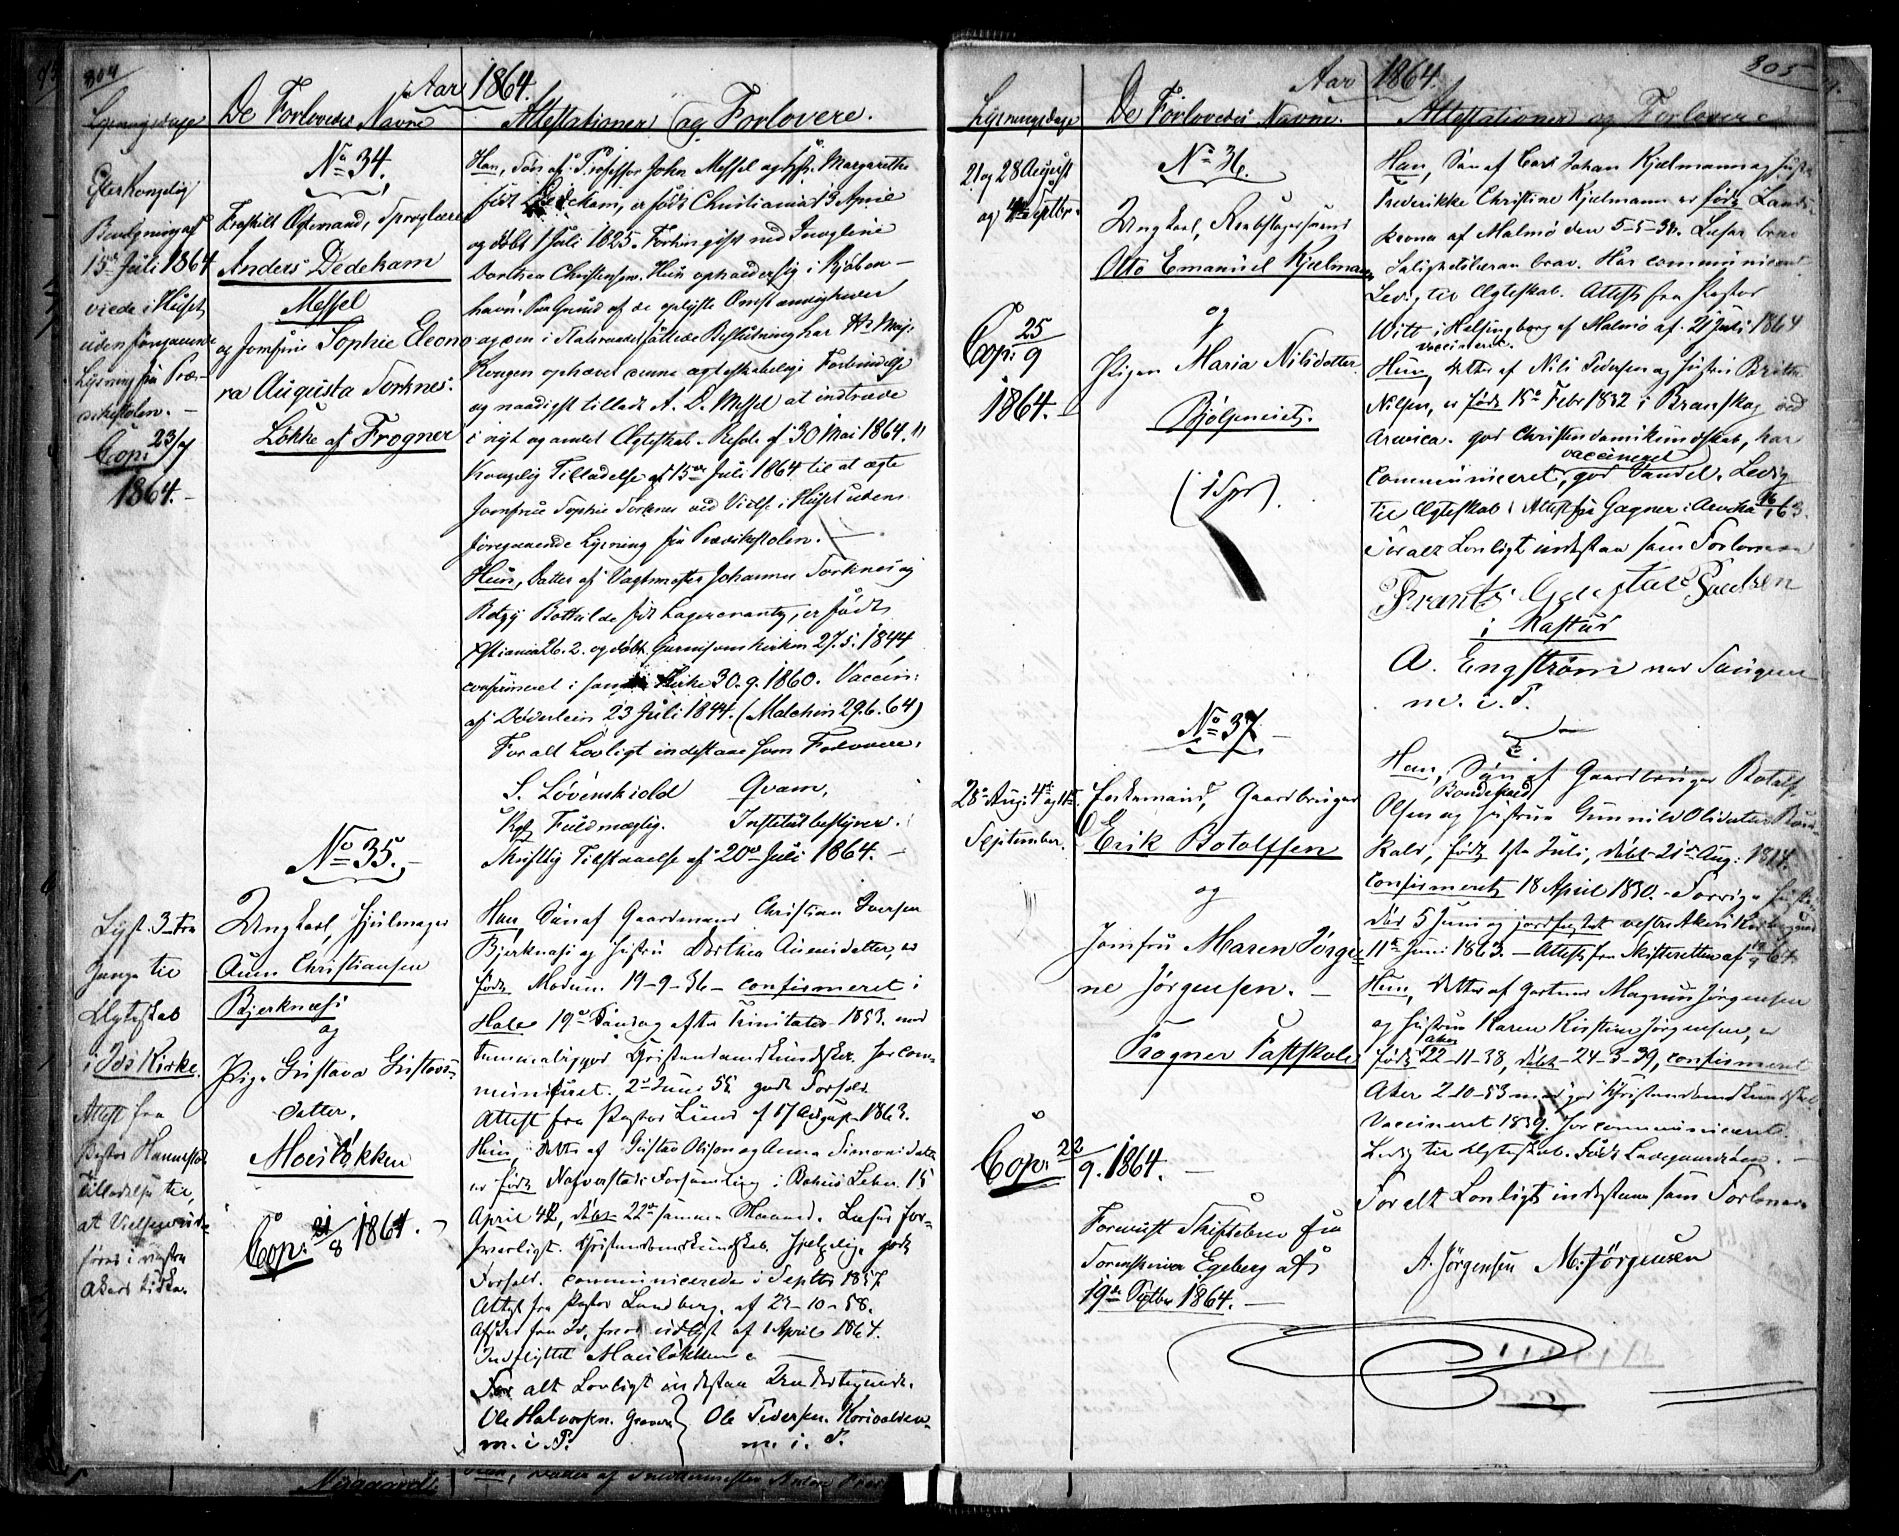 804
Aar 1864.
Lysningsdage
De Forlovedes Navne
Attestationer og Forlovere.
Efter Kongelig
Bevilgning af
15de Juli 1864
viede i Huset
uden foregaaende
Lysning fra Præ-
dikestolen. -
Cop: 23/7
1864. -
No 34.
Fraskilt Ægtemand, Sproglærer
Anders Dedekam
Messel
og Jomfrue Sophie Eleono
ra Augusta Torknes.
Løkke af Frogner
Han, Søn af: Professor John Messel og Margarethe
født Dedekam, er født Christiania 13 April
og døbt 1 Juli 1825. Forhin gift med
Dorthea Christensen. Hun opholder sig i Kjøben-
havn. Paa Grund af de oplyste Omstændigheder
og den i Statsraadet fattede Beslutning har Hs Maj:
Kongen ophævet denne ægteskabelige Forbindelse
og naadigst tilladt A. D. Messel at indtræde
i nyt og andet Ægteskab. Resol: af 30 Mai 1864.
Kongelig Tilladelse af 15de Juli 1864 til at ægte
Jomfrue Sophie Torknes ved Vielse i Huset uden
foregaaende Lysning fra Prædikestolen. -
Hun, Datter af Vagtmester Johannes Torknes og
Betzy Bothilde født er født
Xstiania 26. 2. og døbt Garnisonskirken 27. 5. 1844,
confirmeret i samme Kirke 30. 9. 1860. Vaccin:
af Døderlein 23 Juli 1844. (Malchin 29. 6. 64)
For alt Lovligt indestaae som Forlovere:
S. Løvenskiold Qvam,
Kgf Fuldmægtig. Institutbestyrer.
Skriftlig Tilstaaelse af 20de Juli 1864. -
Lyst 3 tre
Gange til
Ægteskab
i Ids Kirke.
Attest fra
Pastor
Tilladelse til,
at Vielsen ud-
føres i vestre
Akers Kirke.
No 35.
Ungkarl, Hjulmager
Aun Christiansen
Bjerknæs
og
Pige Gustava Gustavs-
datter.
Moesløkken
Cop: 21/8 1864. -
Han, Søn af Gaardmand Christian Iversen
Bjerknæs og Hustru Dorthea er
født Modum 19-9-36 - confirmeret i
Hole 19de Søndag efter Trinitatis 1853. med
Christendomskundskab. har com-
municeret. 2 Juni 55 godt Forhold
Attest fra Pastor Lund af 17 August 1863.
Hun, Datter af Gustav Olsson og Anna Simonsdatter
er født Forsamling i Bohus Lehn 15
April 42, døbt 22de samme Maaned. Læser for-
svarligt. Christendomskundskab. hjelpelig. godt
Forhold. communicerede i Septbr 1857
Attest fra Pastor Lundberg. af 23-10-58.
Afsked fra Id, hvor udlyst af 1 April 1864.
Indflyttet Moesløkken.
For alt Lovligt indestaae Undertegnede.
Ole Halvorsen. Graver Ole Pedersen
m. i. P. m. i. P.
305
Aar 1864.
Lysningsdage
De Forlovedes Navne.
Attestationer og Forlovere
21 og 28 August
og 4de Septbr.
Cop: 25/9
1864. -
No 36.
Ungkarl, Rebslagersvend
Otto Emanuel Kjelmann
og
Pigen Maria Nilsdatter
Bjølseniet.
(1 Spd).
Han, Søn af Carl Johan Kjelmann og Hustru
Frederikke Christine Kjelmann er født Lands-
krona af Malmø den 5-5-38. Läsar bra
Salighetsläran bra. Har communicerat.
Ledig til Ægteskab. Attest fra Pastor
Witt i Helsingborg af Malmø af 21 Juli 1864
vaccineret.
Hun, Datter af Nils Pedersen og Hustru Britta
Nilsen, er født 15de Febr 1832 i Brunskog ved
Arvica. god Christendomskundskab, har
vaccineret
communiceret, god Vandel. Ledig
til Ægteskab. Attest fra Gagner i Arvika 63.
For alt Lovligt indestaae som Forlovere
Frants Gustav Poulsen
i Kastus
A. Engstrøm
m. i. P.
28de Aug: 4de og 11te
September.
No 37.
Enkemand, Gaardbruger
Erik Botolfsen
og
Jomfru Maren Jørge-
ne Jørgensen. -
Frogner Fattskole
Cop: 22/9. 1864. -
Forevist Skiftebrev fra
Sorenskriver Egeberg af
19de Septbr 1864. -
Han, Søn af Gaardbruger Botolf
Olsen og Hustru Gunnild Olsdatter
født 1ste Juli, døbt 21de Aug: 1814.
confirmeret 18 April 1830. Forrige Hustru
død 5 Juni og jordfæstet vestre Akers Kirkegaard
11te Juni 1863. - Attest fra Skifteretten af 19/9 64
Hun, Datter af Gartner Magnus Jørgensen
og Hustru Karen Kirstine Jørgensen, er
Aker
født 22-11-38, døbt 24-3-39, confirmeret
Aker 2-10-53 med god Christendomskundskab.
Vaccineret 1839. har communiceret.
Ledig til Ægteskab. Født Ladegaardsøen. -
For alt Lovligt indestaae som Forlovere
A. Jørgensen M. Jørgensen